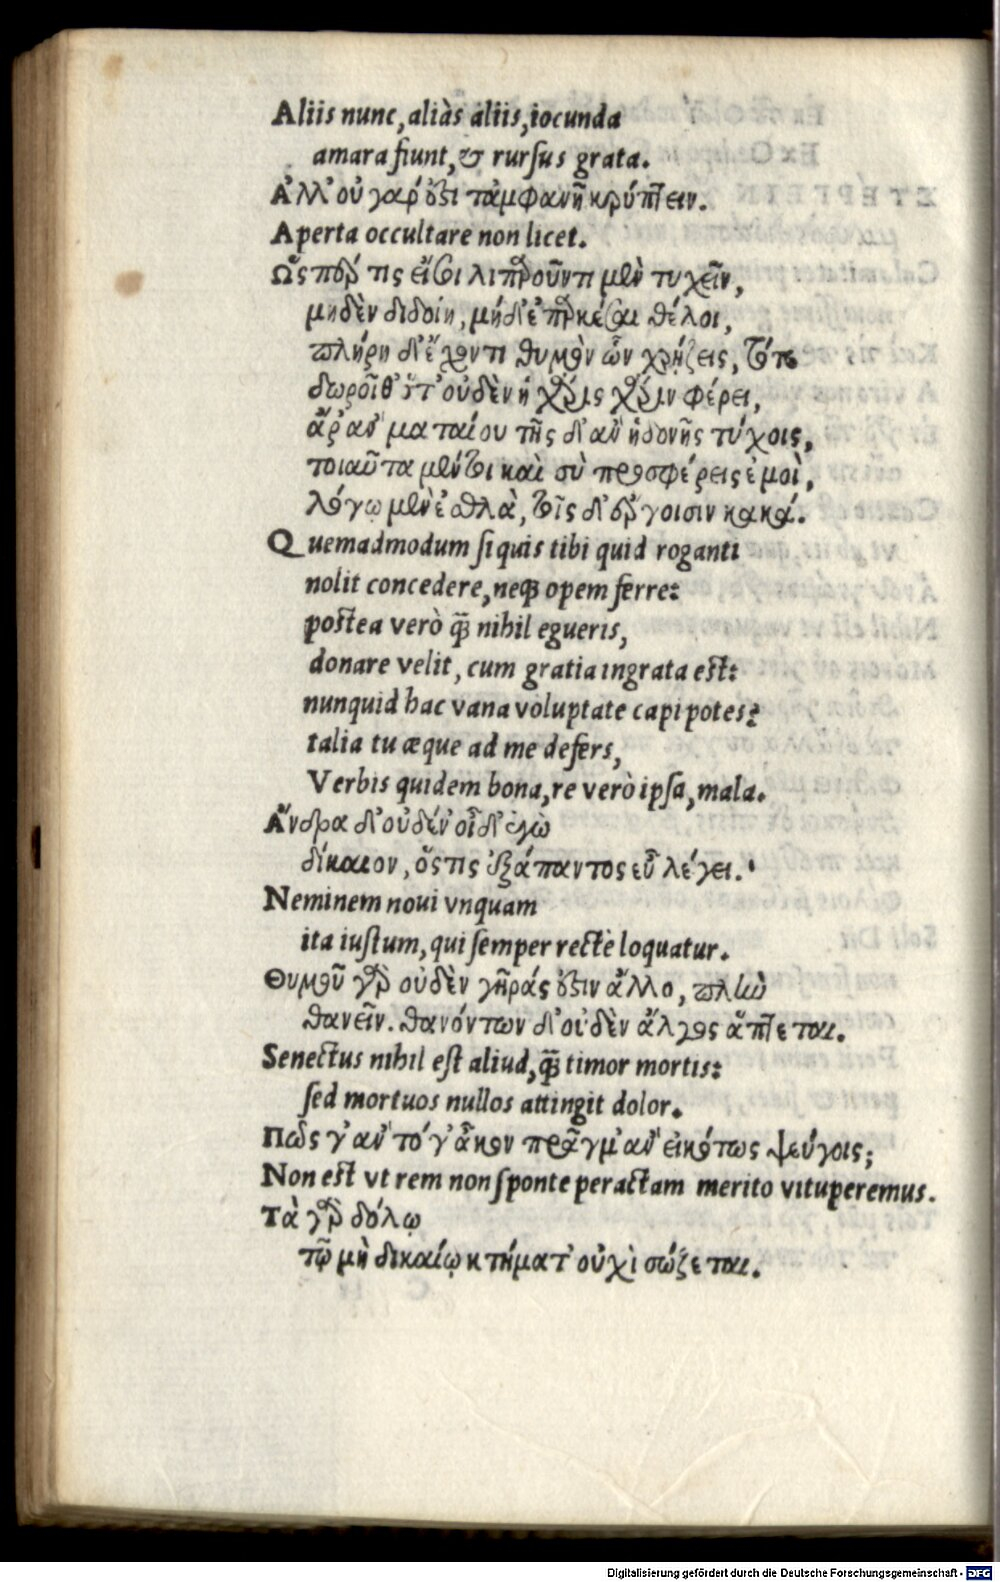 Aliis nunc, aliàs aliis, iocunda
amara fiunt, & rursus grata.
Ἀλλ' οὐ γάρ ἐστι τἀμφανῆ κρύπτειν.
Aperta occultare non licet.
Ὥσπερ τις εἴ σοι λιπαροῦντι μὲν τυχεῖν,
μηδὲν διδοίη, μήδ' ἐπαρκέσαι θέλοι,
πλήρη δ' ἔχοντι θυμὸν ὧν χρῄζεις, τότε
δωροῖθ' ὅτ' οὐδὲν ἡ χάρις χάριν φέρει,
ἆρ' ἂν ματαίου τῆς δ' ἂν ἡδονῆς τύχοις,
τοιαῦτα μέντοι καὶ σὺ προσφέρεις ἐμοὶ,
λόγῳ μὲν ἐσθλὰ, τοῖς δ' ἔργοισιν κακά.
Quemadmodum si quis tibi quid roganti
nolit concedere, neq; opem ferre:
postea verò q̃ nihil egueris,
donare velit, cum gratia ingrata est:
nunquid hac vana voluptate capi potes?
talia tu æque ad me defers,
Verbis quidem bona, re verò ipsa, mala.
Ἄνδρα δ' οὐδέν' οἶδ' ἐγὼ
δίκαιον, ὅστις ἐξάπαντος εὖ λέγει.
Neminem noui vnquam
ita iustum, qui semper rectè loquatur.
Θυμοῦ γὰρ οὐδὲν γῆράς ἐστιν ἄλλο, πλὴν
θανεῖν. θανόντων δ' οὐδὲν ἄλγος ἅπτεται.
Senectus nihil est aliud, q̃ timor mortis:
sed mortuos nullos attingit dolor.
Πῶς γ' ἂν τό γ' ἆκον πρᾶγμ' ἂν εἰκότως ψέγοις;
Non est vt rem non sponte peractam merito vituperemus.
Τὰ γὰρ δόλῳ
τῷ μὴ δικαίῳ κτήματ' οὐχὶ σώζεται.
Digitalisierung gefördert durch die Deutsche Forschungsgemeinschaft - DFG